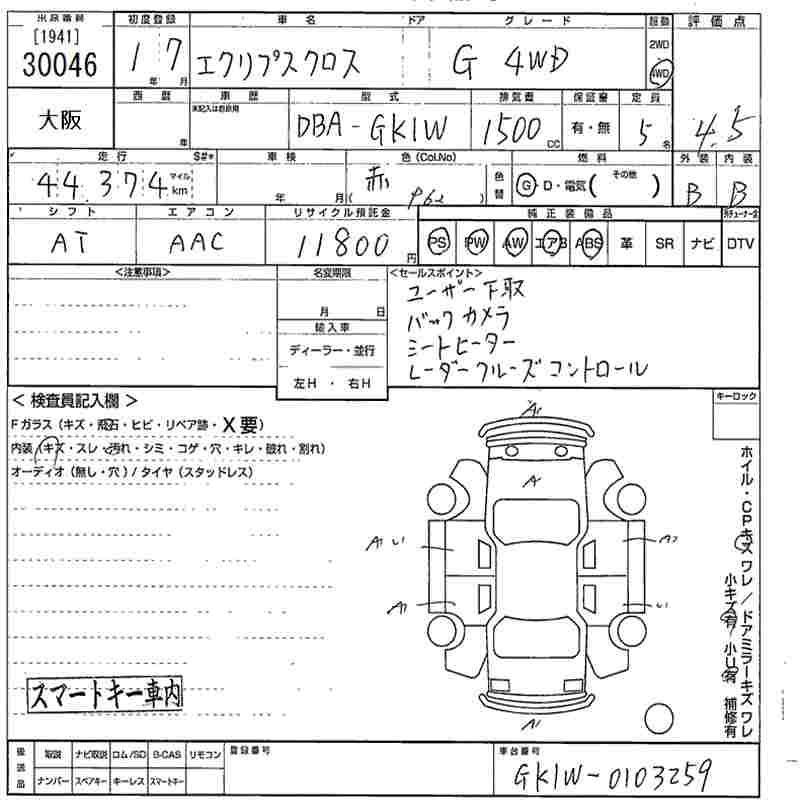 出品番号 初度登録 車名 ドア グレード 駆動 評価点
[1941] 30046 1年 7月 エクリプスクロス G 4WD 2WD 4WD 4.5
大阪 西暦 年 車歴 未記入は自家用 型式 DBA-GK1W 排気量 1500cc 保証書 有・無 定員 5名
走行 S#* 車検 色(Col.No) 色替 燃料 外装 内装
44,374 マイル km 年 月 赤 ( P62 ) G・D・電気( その他 ) B B
シフト エアコン リサイクル預託金 純正装備品
AT AAC 11800円 PS PW AW エアB ABS 革 SR ナビ DTV
<注意事項> 名変期限 <セールスポイント>
月 日 ユーザー下取
輸入車 バックカメラ
ディーラー・並行 シートヒーター
左H・右H レーダークルーズコントロール
<検査員記入欄> キーロック
Fガラス(キズ・飛石・ヒビ・リペア跡・X要)
内装(キズ・スレ・汚れ・シミ・コゲ・穴・キレ・破れ・割れ)
オーディオ(無し・穴)/タイヤ(スタッドレス)
A1
A
A1 U1 A2
A1 U1
A1
ホイル・CPキズ ワレ/ドアミラーキズ ワレ
小キズ有 小U有 補修有
スマートキー車内
後送品 取説 ナビ取説 ロム/SD B-CAS リモコン 登録番号 車台番号
ナンバー スペアキー キーレス スマートキー GK1W-0103259